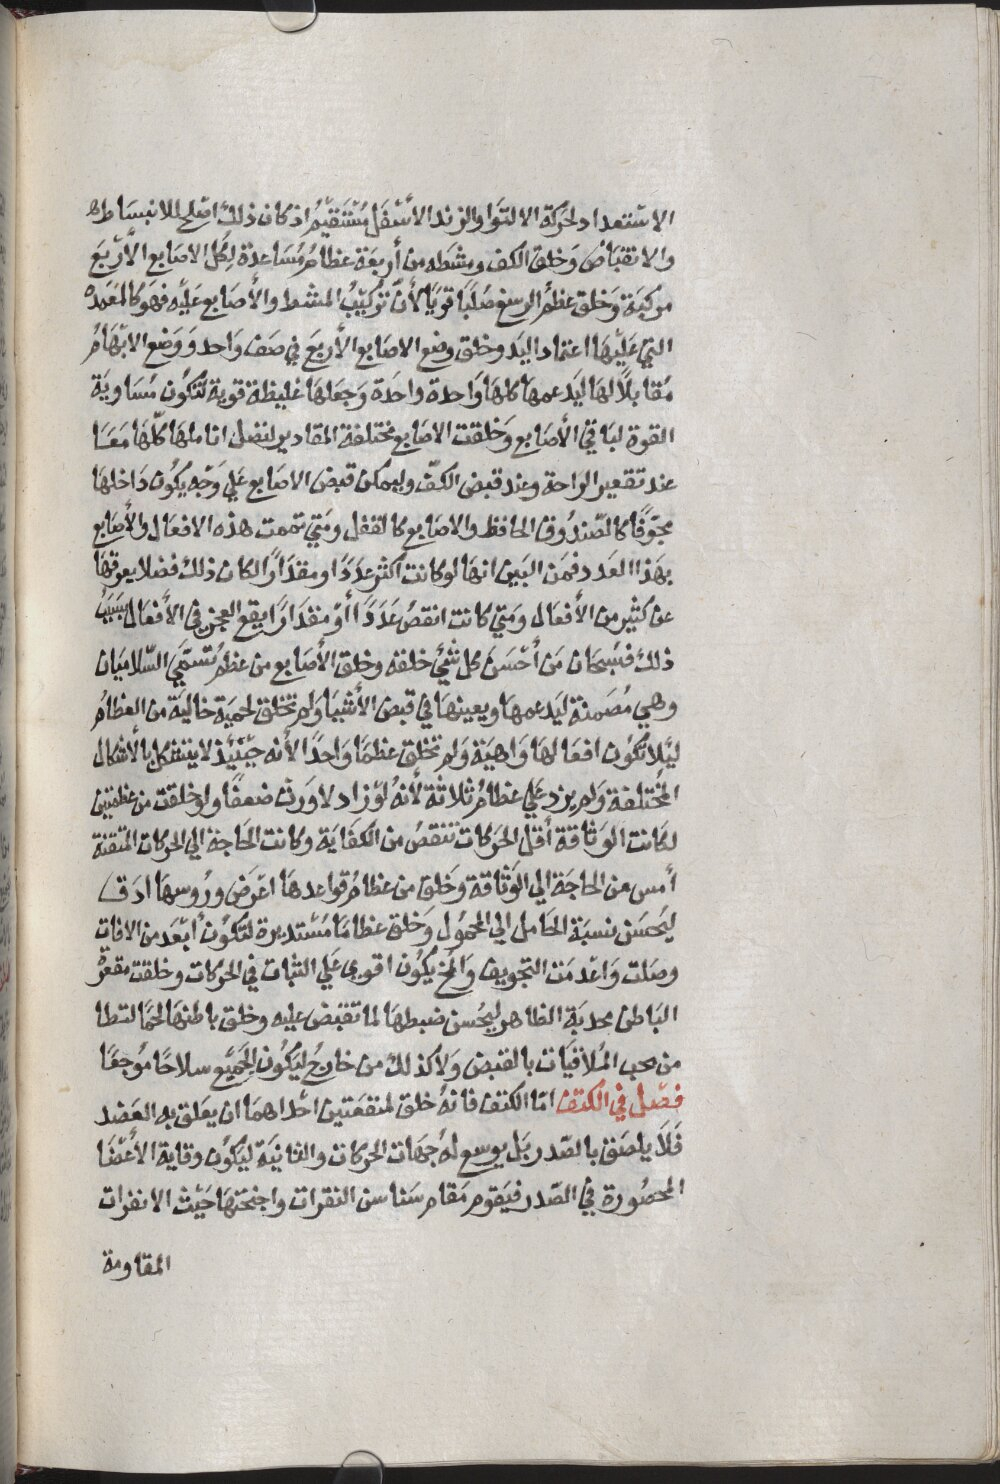 الاستعداد لحركة الالتوا والزند الأسفل مستقيم اذ كان ذلك اصلح للانبساط
والانقباض وخلق الكف ومشطه من أربعة عظام مساعدة لكل الاصابع الأربع
مركبة وخلق عظم الرسغ صلبًا قويًا لأن تركيب المشط والأصابع عليه فهو كالعمدة
التي عليها اعتماد اليد وخلق وضع الاصابع الأربع في صف واحد ووضع الابهام
مقابلًا لها ليدعمها كلها واحدة واحدة وجعلها غليظة قوية لتكون مساوية
القوة لباقي الأصابع وخلقت الاصابع مختلفة المقادير لتصل اناملها كلها معًا
عند تقعير الراحة وعند قبض الكف وليمكن قبض الاصابع علي وجه يكون داخلها
مجوفًا كالصندوق الحافظ والاصابع كالقفل ومتي تممت هذه الافعال والأصابع
بهذا العدد فمن البين انها لو كانت اكثر عددًا او مقدارًا لكان ذلك فضلا يعوقها
عن كثير من الأفعال ومتي كانت انقص عددًا أو مقدارًا يقع العجز في الأفعال بسبب
ذلك فسبحان من أحسن كل شيء خلقه وخلق الأصابع من عظم تسمي السلاميات
وهي مصمتة ليدعمها ويعينها في قبض الأشيا ولم تخلق لحمية خالية من العظام
ليلا تكون افعالها واهية ولم تخلق عظمًا واحدًا لأنه حينئذ لا يتشكل بالأشكال
المختلفة ولم يزد علي عظام ثلاثة لأنه لو زاد لاورث ضعفًا ولو خلقت من عظمتين
لكانت الوثاقة أقل الحركات تنقص من الكفاية وكانت الحاجة الي الحركات المتقنة
أمس من الحاجة الي الوثاقة وخلق من عظام قواعدها اعرض وروسها ادق
ليحسن نسبة الحامل الي المحمول وخلق عظاما مستديرة لتكون أبعد من الافات
وصلت واعدمت التجويف والمخ يكون اقوي علي الثبات في الحركات وخلقت مقعرة
الباطن محدبة الظاهر ليحسن ضبطها لما تقبض عليه وخلق باطنها لحما لتطا
من تحب الملاقيات بالقبض ولا كذلك من خارج ليكون الجميع سلاحًا موجعًا
فصل في الكتف اما الكتف فانه خلق لمنفعتين احداهما ان يعلق به العضد
فلا يلصق بالصدر بل يوسع له جهات الحركات والثانية ليكون وقاية الأعضا
المحصورة في الصدر فيقوم مقام سناسن الفقرات واجنحتها حيث الا نقرات
المقاومة